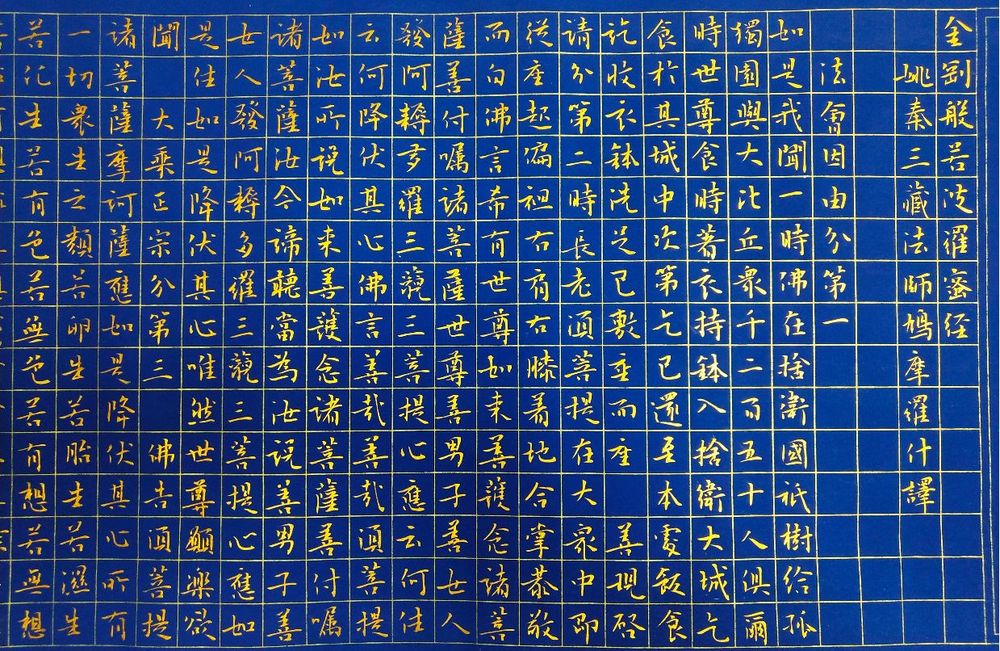 金剛般若波羅蜜经
姚秦三藏法師鳩摩羅什譯
法會因由分第一
如是我聞一時佛在捨衛國祇樹给孤
獨園與大比丘眾千二百五十人俱爾
時世尊食時著衣持鉢入捨衛大城乞
食於其城中次第乞已還至本處飯食
訖收衣鉢洗足已敷坐而座 善現啓
請分第二時長老須菩提在大眾中即
從座起偏袒右肩右膝着地合掌恭敬
而白佛言希有世尊如来善護念諸菩
薩善付嘱諸菩薩世尊善男子善女人
發阿耨多羅三藐三菩提心應云何住
云何降伏其心佛言善哉善哉須菩提
如汝所說如来善護念諸菩薩善付嘱
諸菩薩汝今諦聽當為汝說善男子善
女人發阿耨多羅三藐三菩提心應如
是住如是降伏其心唯然世尊願樂欲
聞 大乘正宗分第三 佛告須菩提
諸菩薩摩訶薩應如是降伏其心所有
一切衆生之類若卵生若胎生若濕生
若化生若有色若無色若有想若無想